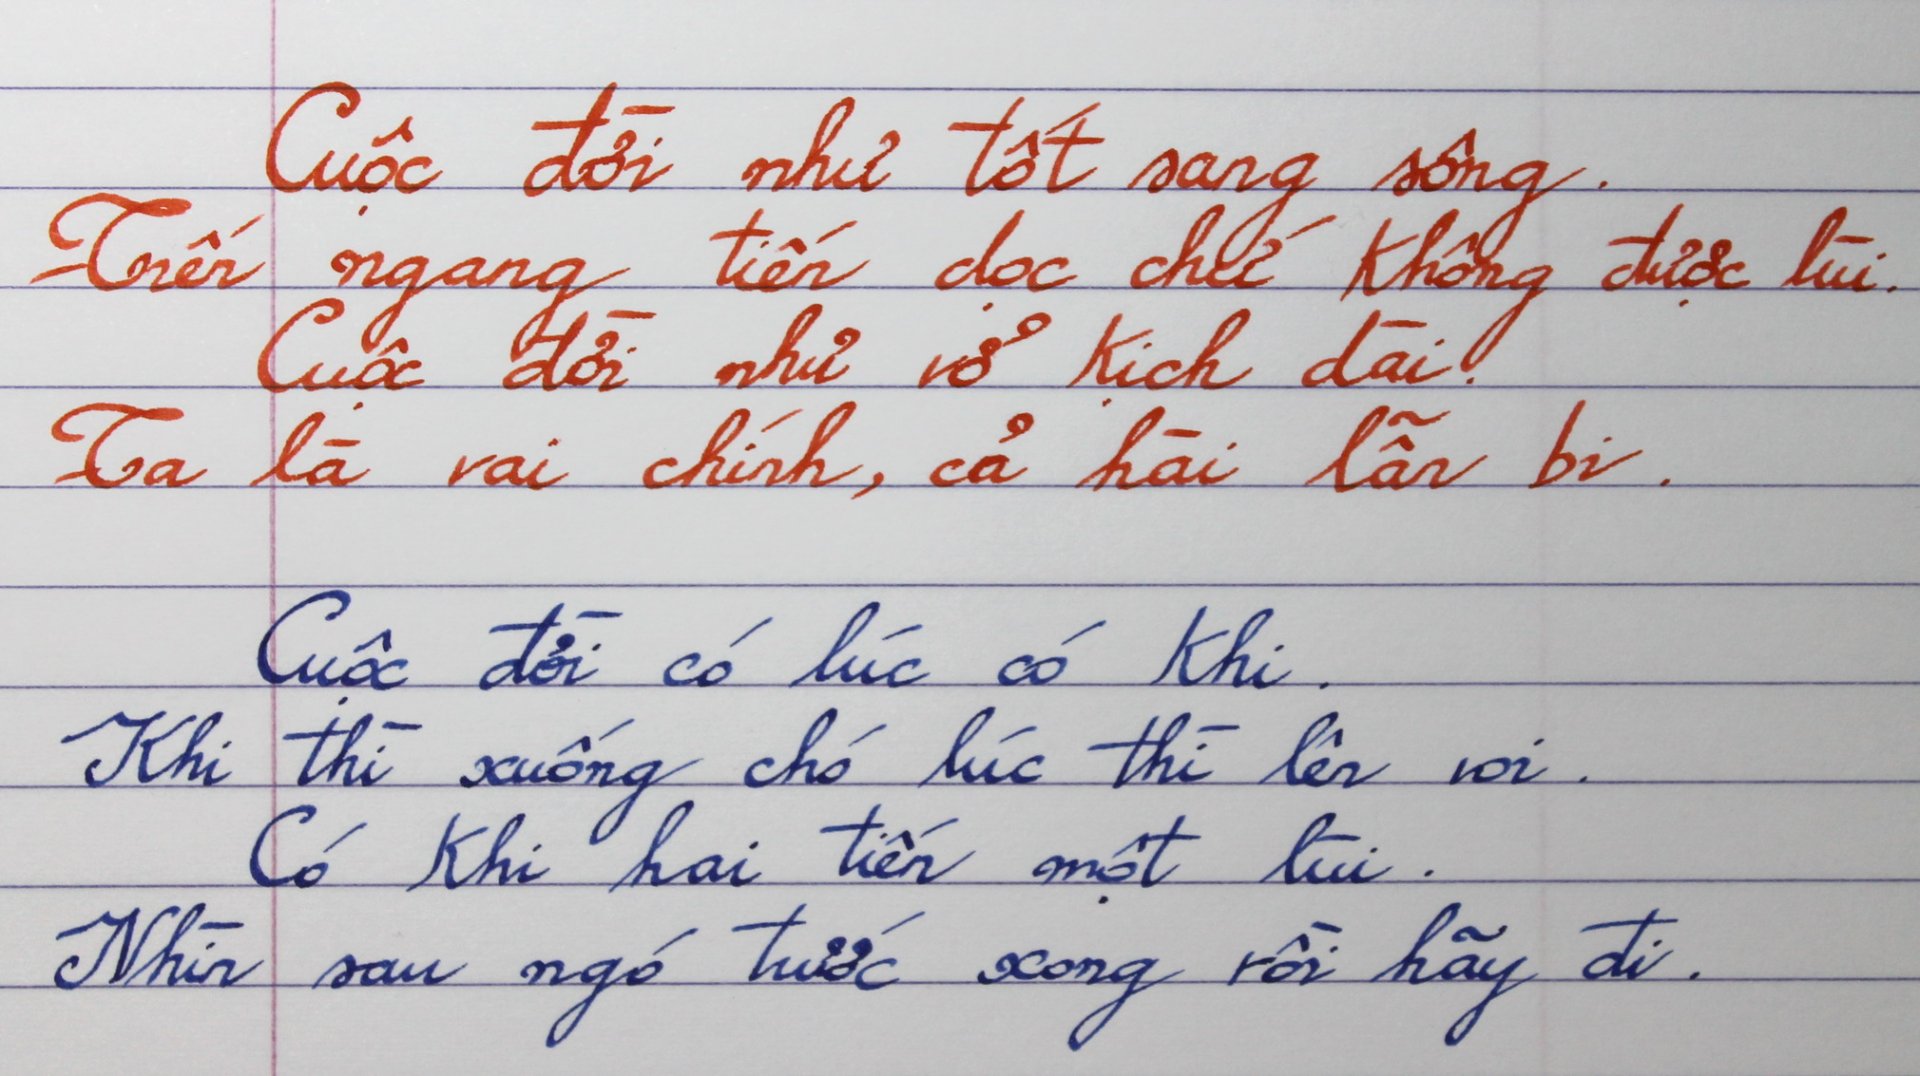 Cuộc đời như tốt sang sông.
Tiến ngang tiến dọc chứ không được lùi.
Cuộc đời như vở kịch dài.
Ta là vai chính, cả hài lẫn bi.
Cuộc đời có lúc có khi.
Khi thì xuống chó lúc thì lên voi.
Có khi hai tiến một lùi.
Nhìn sau ngó trước xong rồi hãy đi.